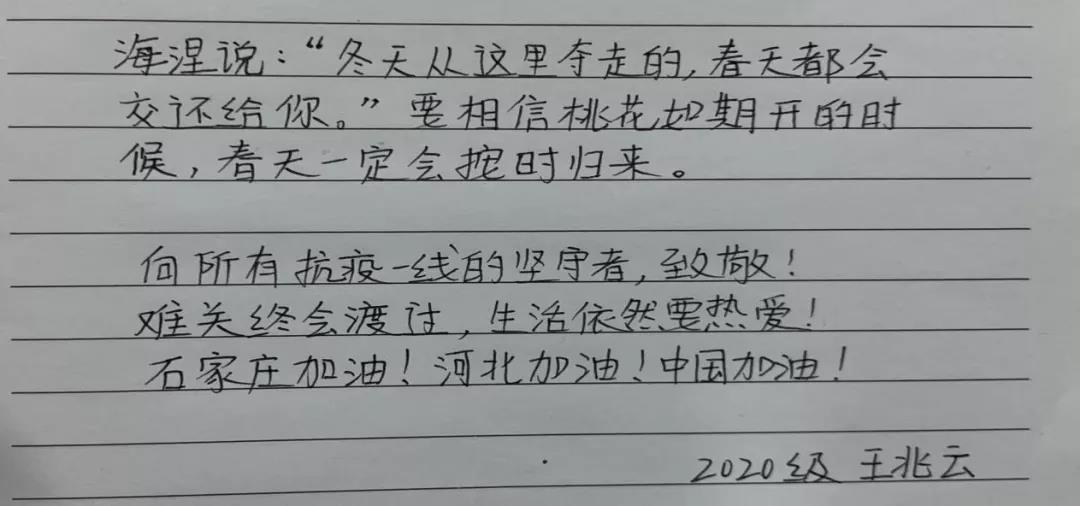 海涅说：“冬天从这里夺走的，春天都会
交还给你。”要相信桃花如期开的时
候，春天一定会按时归来。
向所有抗疫一线的坚守者，致敬！
难关终会渡过，生活依然要热爱！
石家庄加油！河北加油！中国加油！
2020级 王兆云